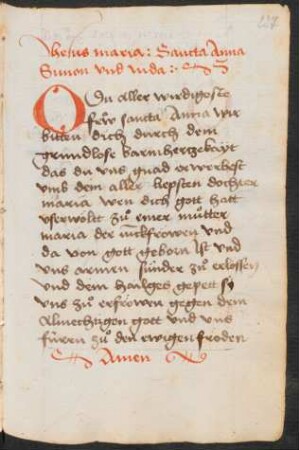 227
Jhesus maria: Sancta Anna
Simon vnd iuda:
O Du aller wirdigoste
frow sancta Anna wir
bitten dich durch dem
grundlose barmhertzekayt
das du vns gnad erwerbest
vmb dem aller liepsten dochter
maria wen dich gott hatt
vserwoltt zů einer můtter
maria der iuckfrowen vnd
da von gott geborn ist vnd
vns armen sünder zů erlossen
vnd dem hailges gepett sy
vns zů erfrowen gegen dem
Almechtigon gott vnd vns
füren zů den ewigen froden
Amen